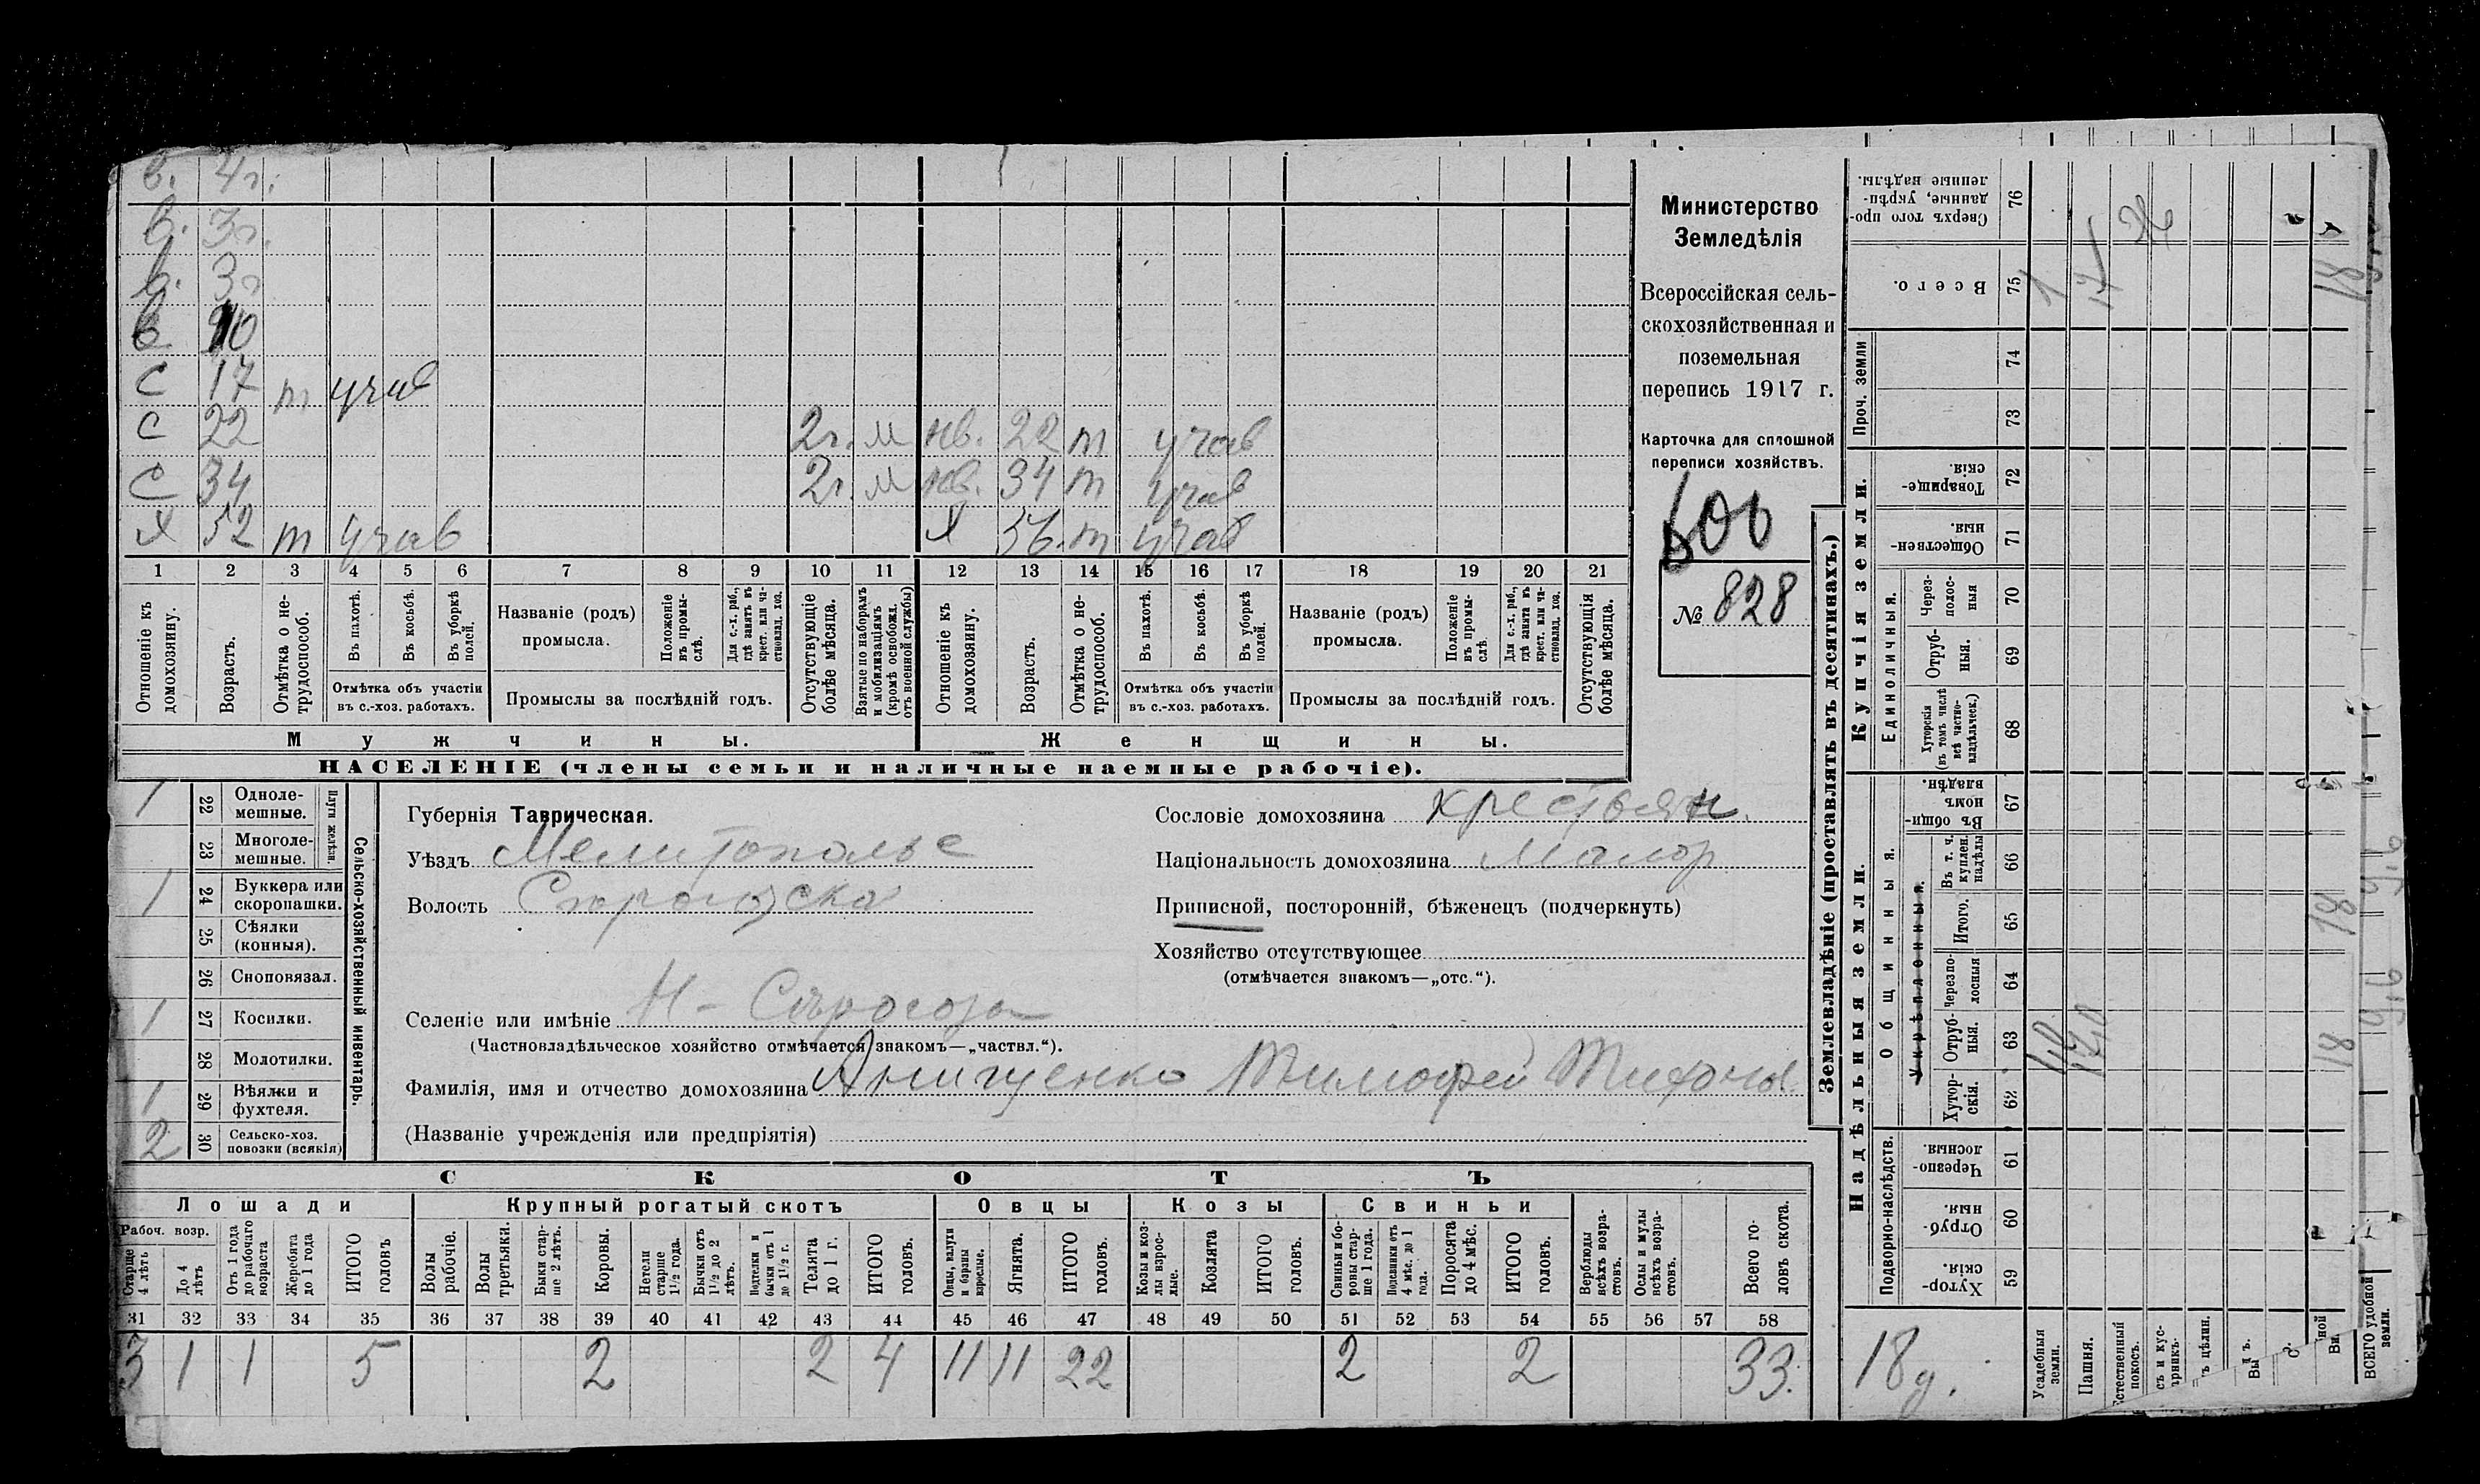 в. 4г.
в. 3г.
в. 3г
в 10
с 17 т учав
с 22 2г. м нв. 22 т учав
с 34 2г. м нв. 34 т учав
Х 52 т учав Х 56 т учав
1 2 3 4 5 6 7 8 9 10 11 12 13 14 15 16 17 18 19 20 21
Отношеніе къ домохозяину.
Возрастъ.
Отмѣтка о не-трудоспособ.
Въ пахотѣ.
Въ косьбѣ.
Въ уборкѣ полей.
Отмѣтка объ участіи
въ с.-хоз. работахъ.
Названіе (родъ)
промысла.
Положеніе въ промы-слѣ.
Для с.-х. раб., гдѣ занятъ въ крест. или ча-стновлад. хоз.
Промыслы за послѣдній годъ.
Отсутствующіе болѣе мѣсяца.
Взятые по наборамъ и мобилизаціямъ (кромѣ освобожд. отъ военной службы)
Отношеніе къ домохозяину.
Возрастъ.
Отмѣтка о не-трудоспособ.
Въ пахотѣ.
Въ косьбѣ.
Въ уборкѣ полей.
Отмѣтка объ участіи
въ с.-хоз. работахъ.
Названіе (родъ)
промысла.
Положеніе въ промы-слѣ.
Для с.-х. раб., гдѣ занята въ крест. или ча-стновлад. хоз.
Промыслы за послѣдній годъ.
Отсутствующія болѣе мѣсяца.
Мужчины.
Женщины.
НАСЕЛЕНІЕ (члены семьи и наличные наемные рабочіе).
Министерство
Земледѣлія
Всероссійская сель-
скохозяйственная и
поземельная
перепись 1917 г.
Карточка для сплошной
переписи хозяйствъ.
№ 828
Сельско-хозяйственный инвентарь.
Плуги желѣзн.
1 22 Одноле-мешные.
23 Многоле-мешные.
1 24 Буккера или скоропашки.
25 Сѣялки (конныя).
26 Сноповязал.
1 27 Косилки.
28 Молотилки.
1 29 Вѣялки и фухтеля.
2 30 Сельско-хоз. повозки (всякія)
Губернія Таврическая.
Уѣздъ Мелитопольс
Волость
Селеніе или имѣніе
(Частновладѣльческое хозяйство отмѣчается знакомъ—„частвл.“).
Фамилія, имя и отчество домохозяина Анищенко Тимофей Тихоны
(Названіе учрежденія или предпріятія)
Сословіе домохозяина крестьян.
Національность домохозяина Малор
Приписной, посторонній, бѣженецъ (подчеркнуть)
Хозяйство отсутствующее
(отмѣчается знакомъ—„отс.“).
СКОТЪ
Лошади
Крупный рогатый скотъ
Овцы
Козы
Свиньи
Рабоч. возр.
Старше 4 лѣтъ
До 4 лѣтъ
Отъ 1 года до рабочаго возраста
Жеребята до 1 года
ИТОГО головъ
Волы рабочіе.
Волы третьяки.
Быки стар-ше 2 лѣтъ.
Коровы.
Нетели старше 1½ года.
Бычки отъ 1½ до 2 лѣтъ.
Подтелки и бычки отъ 1 до 1½ г.
Телята до 1 г.
ИТОГО головъ.
Овцы, валухи и бараны взрослые.
Ягнята.
ИТОГО головъ.
Козы и коз-лы взрос-лые.
Козлята
ИТОГО головъ.
Свиньи и бо-ровы стар-ше 1 года.
Подсвинки отъ 4 мѣс. до 1 года.
Поросята до 4 мѣс.
ИТОГО головъ.
Верблюды всѣхъ возра-стовъ.
Ослы и мулы всѣхъ возра-стовъ.
Всего го-ловъ скота.
31 32 33 34 35 36 37 38 39 40 41 42 43 44 45 46 47 48 49 50 51 52 53 54 55 56 57 58
3 1 1 5 2 2 4 11 11 22 2 2 33.
Землевладѣніе (проставлять въ десятинахъ.)
Купчія земли.
Надѣльныя земли.
Проч. земли
Единоличныя.
Общинныя.
Укрѣпленныя.
Подворно-наслѣдств.
Сверхъ того про-данные, укрѣп-ленные надѣлы. 76
Всего. 75
74
73
Товарище-скія. 72
Обществен-ныя. 71
Через-полос-ныя 70
Отруб-ныя. 69
Хуторскія (въ томъ числѣ всѣ частно-владѣльческ.) 68
Въ общин-номъ владѣн. 67
Въ т. ч. куплен. надѣлы 66
Итого. 65
Черезпо-лосныя 64
Отруб-ныя. 63
Хутор-скія. 62
Черезпо-лосныя. 61
Отруб-ныя. 60
Хутор-скія. 59
18 д.
Усадебныя земли.
Пашня.
Естественный покосъ.
ВСЕГО удобной земли.
1
18
18
18